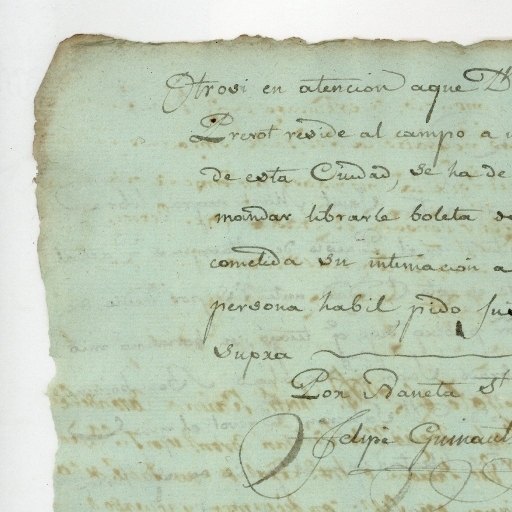 Otrosi en atencion aque Dn
Prevot reside al campo a
de esta Ciudad, se ha de
mandar librarle boleta
cometida su intimacion a
persona habil, pido
supra
Por Naneta St
Felipe Guinault